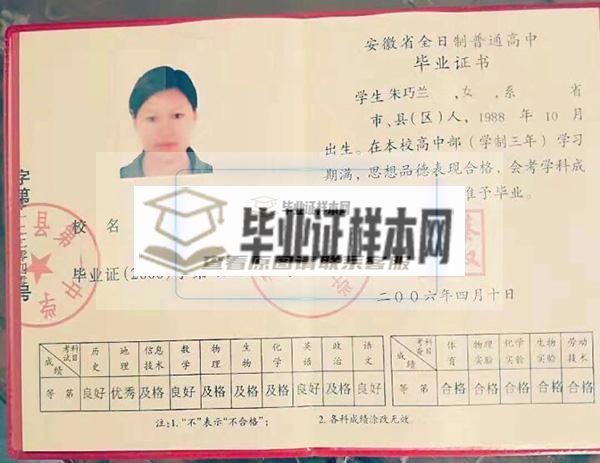 安徽省全日制普通高中
毕业证书
学生 朱巧兰 ,女 ,系 省
市、县(区)人，1988 年 10 月
出生。在本校高中部（学制三年）学习
期满，思想品德表现合格，会考学科成
准予毕业。
校 名
毕业证样本网
查看原图请联系客服
毕业证(2006)字第
二〇〇六年四月十日
考试科目 历史 地理 信息技术 数学 物理 生物 化学 英语 政治 语文
成绩
等 第 良好 优秀 及格 良好 及格 及格 及格 良好 良好 良好
考查科目 体育 物理实验 化学实验 生物实验 劳动技术
成绩
等 第 合格 合格 合格 合格 合格
注:1. “不”表示“不合格”； 2. 各科成绩涂改无效。